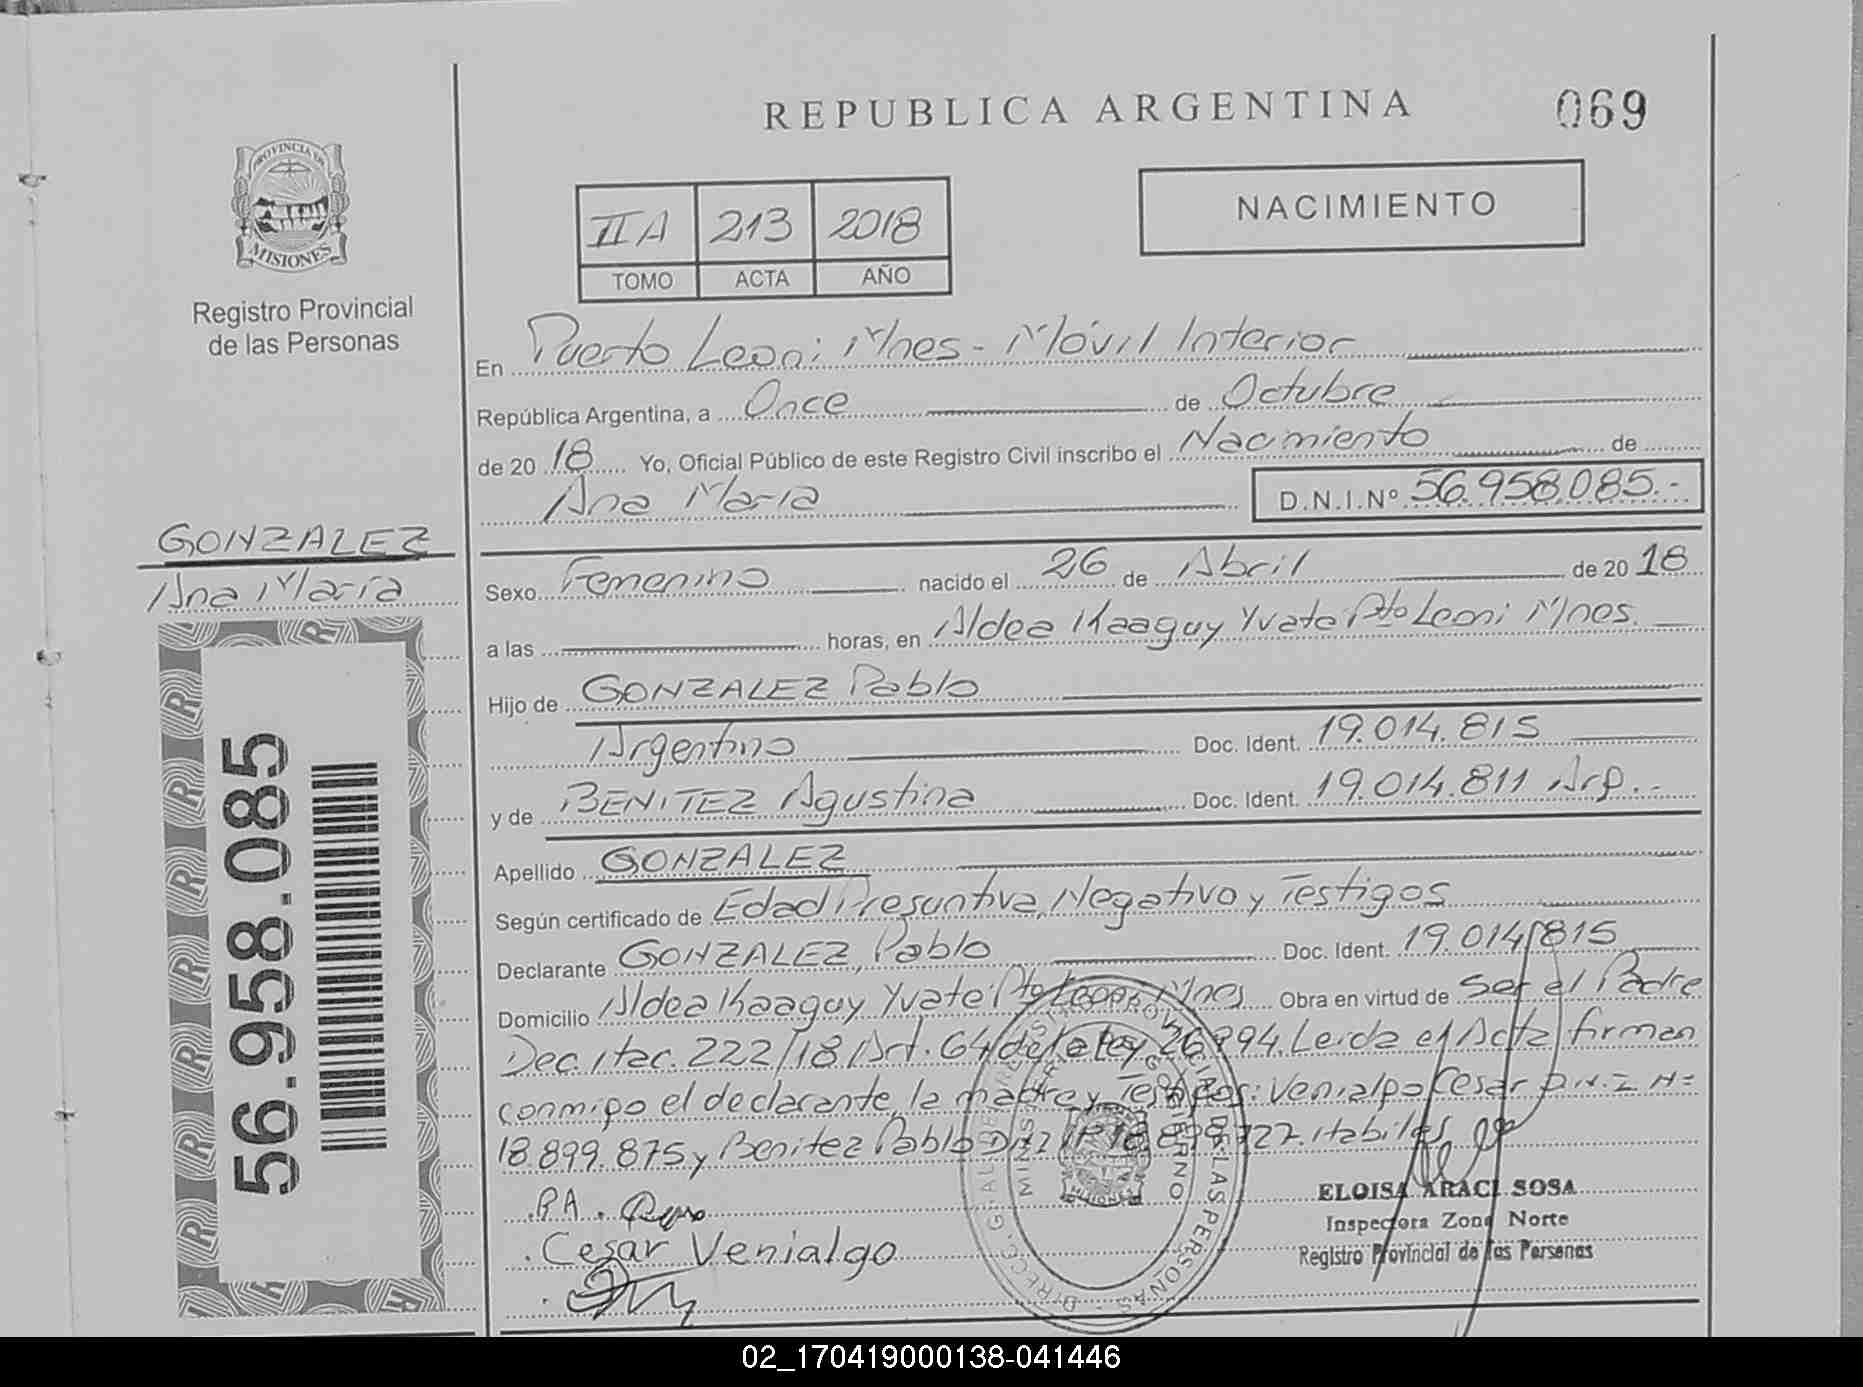 REPUBLICA ARGENTINA
069
PROVINCIA DE
MISIONES
Registro Provincial
de las Personas
II A 213 2018
TOMO ACTA AÑO
NACIMIENTO
En Puerto Leoni Mnes - Móvil Interior
República Argentina, a Once de Octubre
de 20 18 Yo, Oficial Público de este Registro Civil inscribo el Nacimiento de
Ana Maria D.N.I.Nº 56.958.085.-
GONZALEZ
Ana Maria
56.958.085
Sexo Femenino nacido el 26 de Abril de 20 18
a las horas, en Aldea Kaaguy Yvate Pto Leoni Mnes.
Hijo de GONZALEZ Pablo
Argentino Doc. Ident. 19.014.815
y de BENITEZ Agustina Doc. Ident. 19.014.811 Arg.-
Apellido GONZALEZ
Según certificado de Edad Presuntiva, Negativo y Testigos
Declarante GONZALEZ, Pablo Doc. Ident. 19.014.815
Domicilio Aldea Kaaguy Yvate Pto Leoni Mnes Obra en virtud de Ser el Padre
Dec. 222/18 Art. 64 de la ley 26.994. Leida el Acta firman
conmigo el declarante, la madre y Testigos: Venialgo Cesar D.N.I Nº
18.899.875 y Benitez Pablo DNI Nº Habiles
P.A.
Cesar Venialgo
ELOISA ARACI SOSA
Inspectora Zona Norte
Registro Provincial de las Personas
02_170419000138-041446